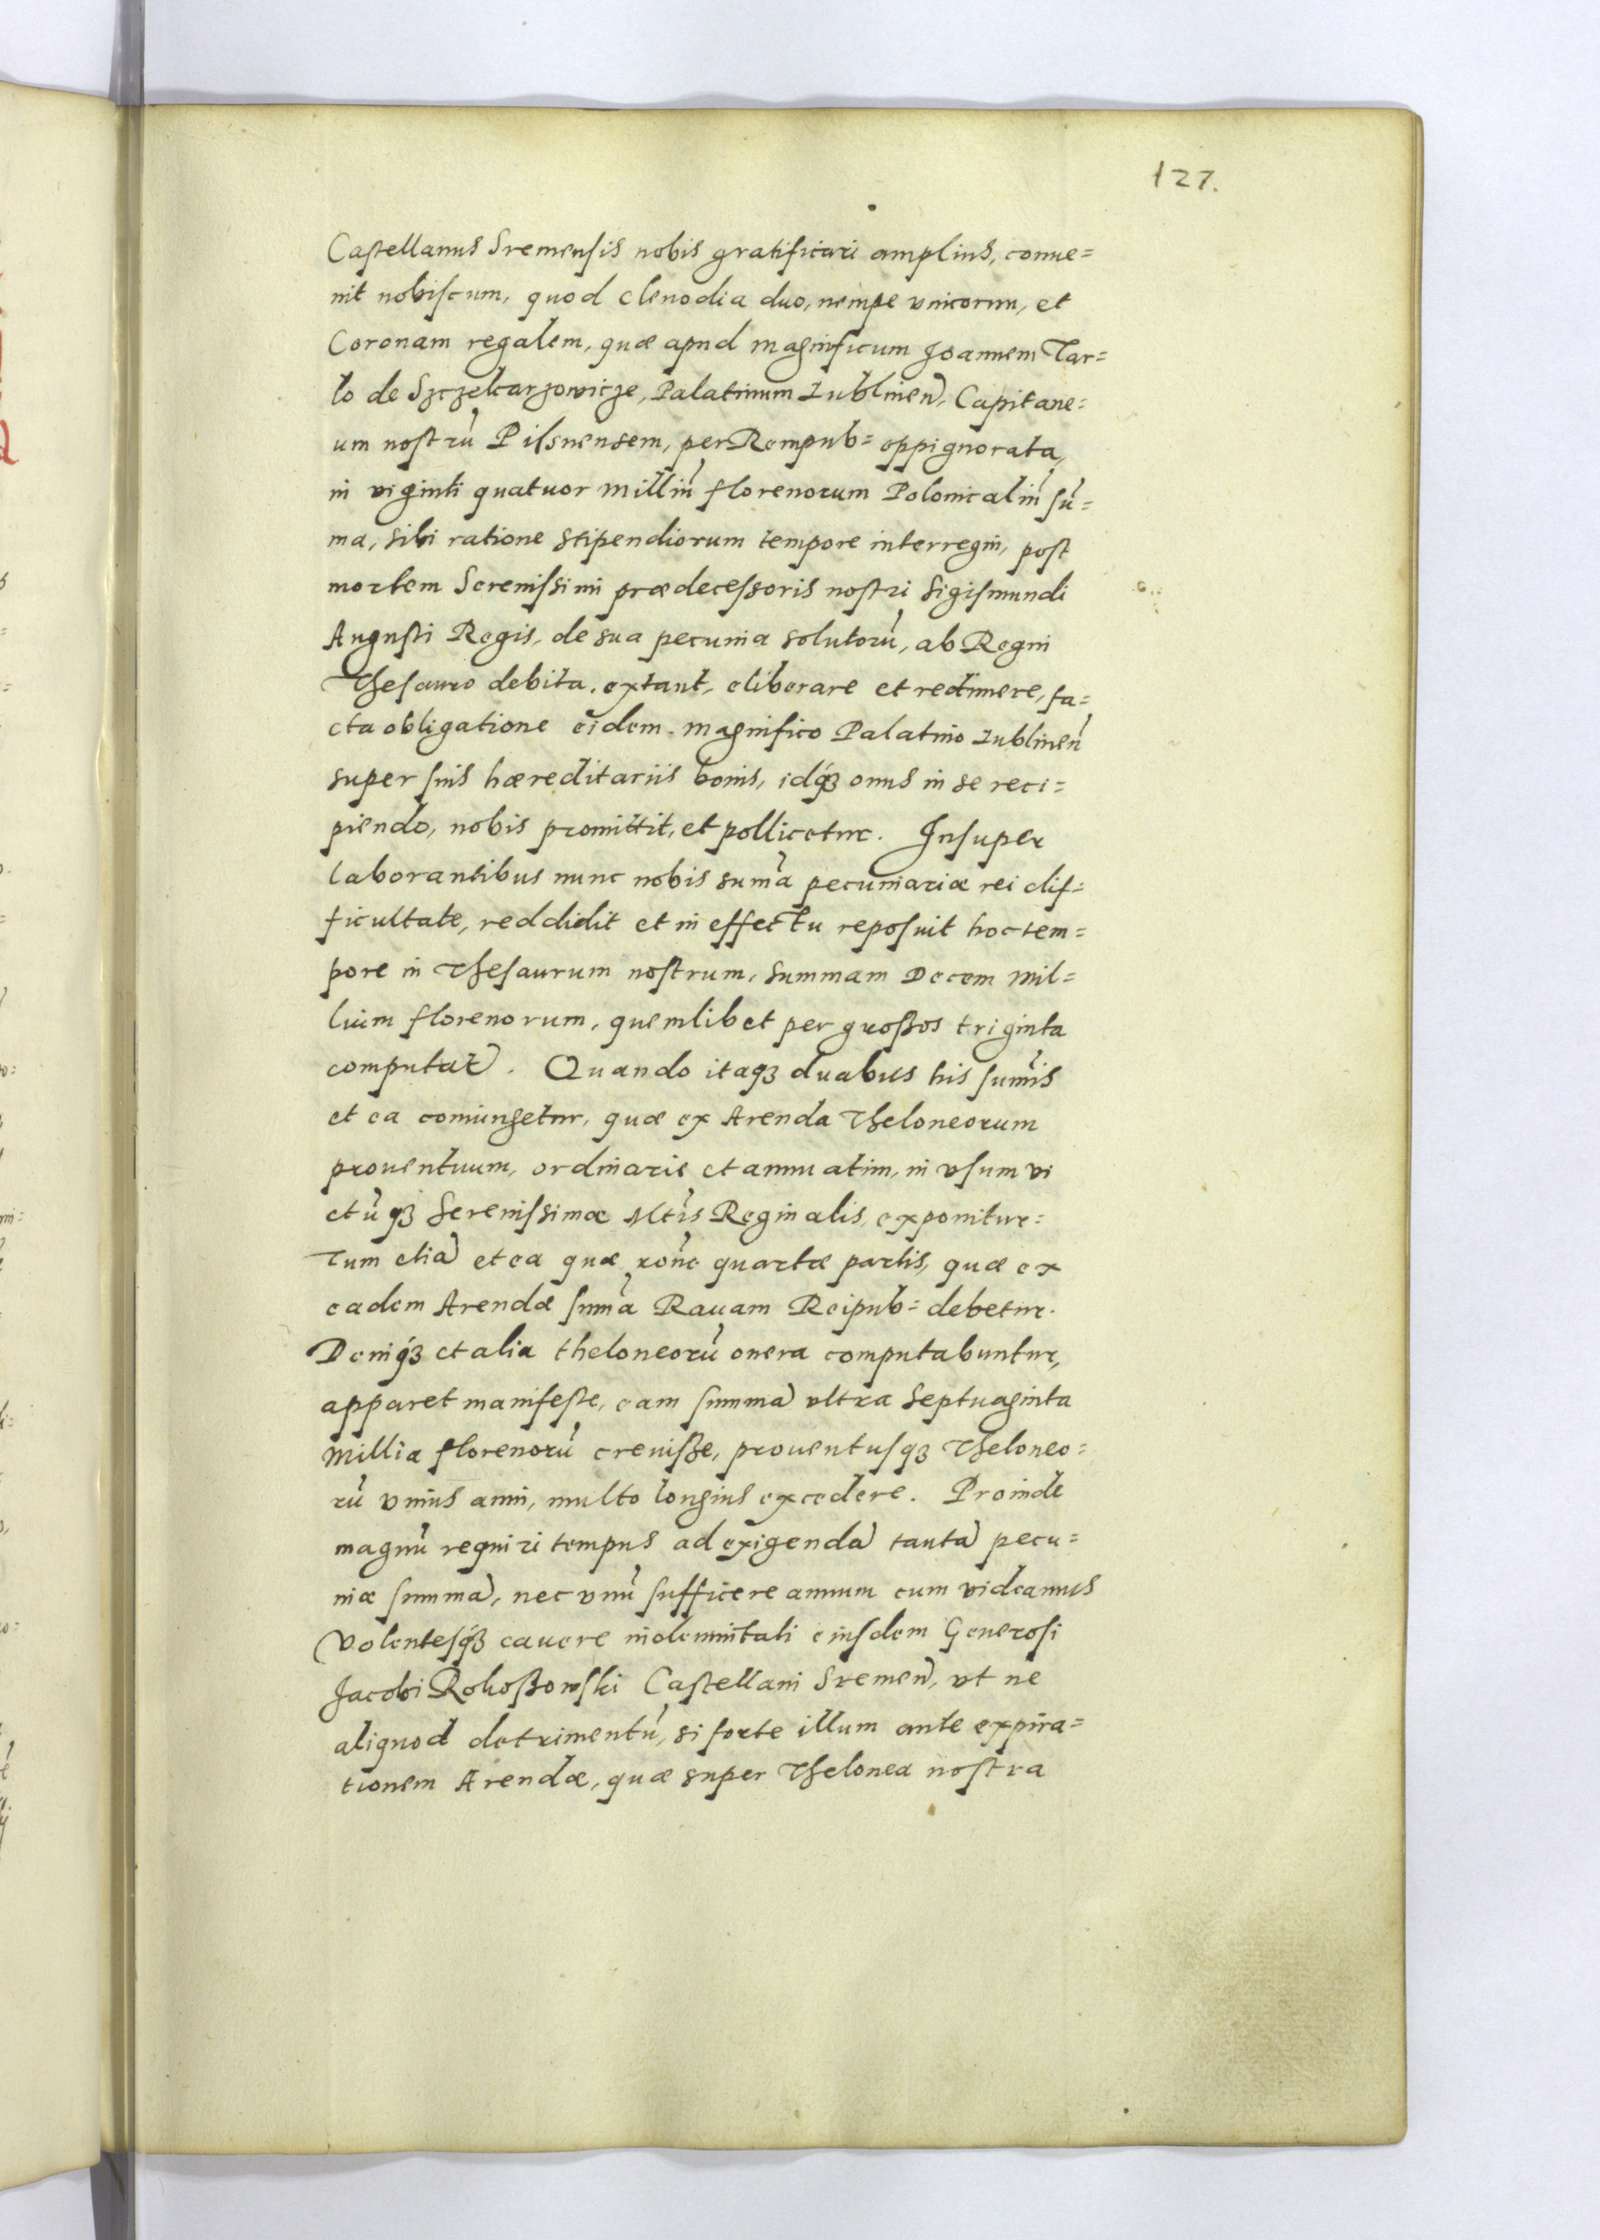 127.
Castellanus Sremensis nobis gratificari amplius, conue=
nit nobiscum, quod clenodia duo, nempe vnicorun, et
Coronam regalem, quæ apud magnificum Joannem Tar=
lo de Szczekarzowicze, Palatinum Lublineñ, Capitane=
um nostrũ Pilsnensem, per Rempub= oppignorata,
in viginti quatuor milliũ florenorum Polonicaliũ sũ=
ma, sibi ratione stipendiorum tempore interregni, post
mortem Serenissimi prædecessoris nostri Sigismundi
Augusti Regis, de sua pecunia solutorũ, ab Regni
Thesauro debita, extant, eliberare et redimere, fa=
cta obligatione eidem magnifico Palatino Lublineñ
super suis hæreditariis bonis, idq́ꝫ onus in se reci=
piendo, nobis promittit, et pollicetur. Insuper
laborantibus nunc nobis sum̃a pecuniariæ rei dif=
ficultate, reddidit et in effectu reposuit hoc tem=
pore in Thesaurum nostrum, summam Decem mil=
lium florenorum, quemlibet per großos triginta
computañ. Quando itaqꝫ duabus his sum̃is
et ea coniungetur, quæ ex Arenda Theloneorum
prouentuum, ordinarie et annuatim, in vsum vi
ctũqꝫ Serenissimæ Mt̃is Reginalis, exponitur=
Tum etiã et ea quæ rõne quartæ partis, quæ ex
eadem Arendæ sum̃a Rauam Reipub= debetur.
Deniq́ꝫ et alia theloneorũ onera computabuntur,
apparet manifeste, eam summã vltra Septuaginta
Millia florenorũ creuiße, prouentusqꝫ Theloneo=
rũ vnius anni, multo longius excedere. Proinde
magnũ requiri tempus ad exigendã tantã pecu=
niæ summã, nec vnũ sufficere annum cum videamus
Volentesq́ꝫ cauere indemnitati eiusdem Generosi
Jacobi Rokoßowski Castellani Sremeñ, vt ne
aliquod detrimentũ, si forte illum ante expira=
tionem Arendæ, quæ super Thelonea nostra